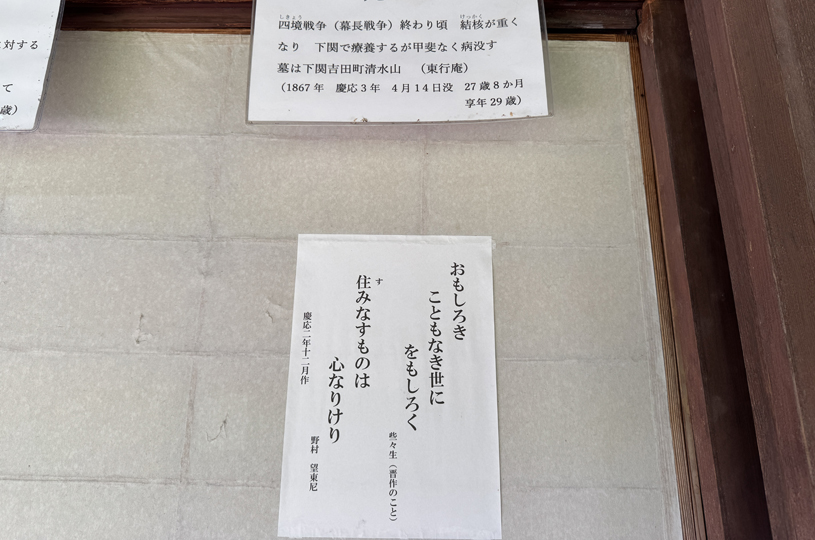 四境戦争（幕長戦争）終わり頃　結核が重く
なり　下関で療養するが甲斐なく病没す
墓は下関吉田町清水山　（東行庵）
（1867年　慶応3年　4月14日没　27歳8か月
享年29歳）
に対する
て
歳）
おもしろき
こともなき世に
をもしろく
些々生（晋作のこと）
住みなすものは
心なりけり
野村　望東尼
慶応二年十二月作